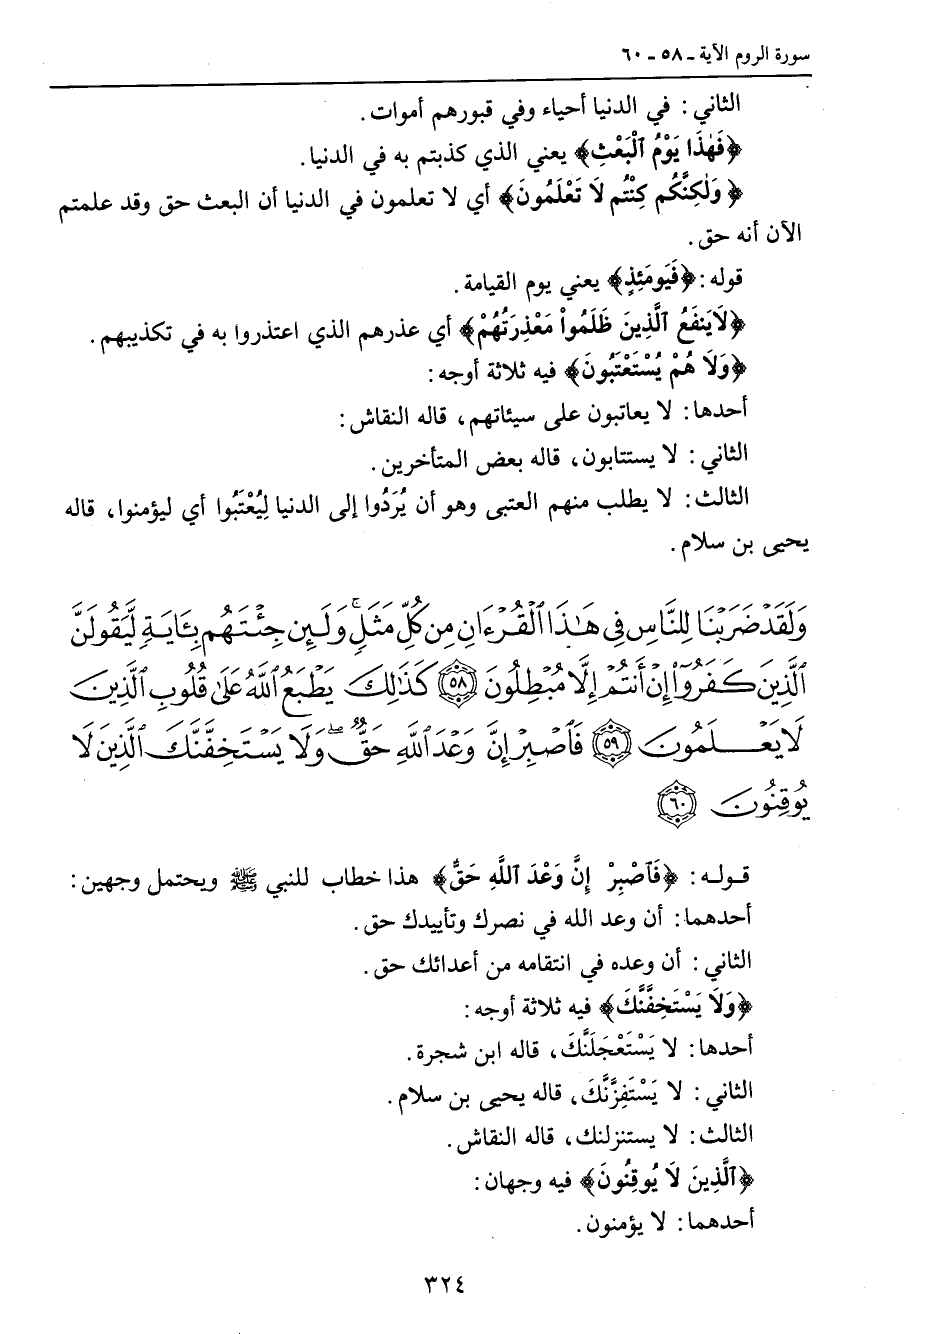 سورة الروم الآية ـ ٥٨ ـ ٦٠
الثاني: في الدنيا أحياء وفي قبورهم أموات.
﴿فَهَٰذَا يَوْمُ ٱلْبَعْثِ﴾ يعني الذي كذبتم به في الدنيا.
﴿وَلَٰكِنَّكُم كِنْتُم لَا تَعْلَمُونَ﴾ أي لا تعلمون في الدنيا أن البعث حق وقد علمتم
الآن أنه حق.
قوله: ﴿فَيَومَئِذٍ﴾ يعني يوم القيامة.
﴿لَايَنفَعُ ٱلَّذِينَ ظَلَمُواْ مَعْذِرَتُهُمْ﴾ أي عذرهم الذي اعتذروا به في تكذيبهم.
﴿وَلَا هُمْ يُسْتَعْتَبُونَ﴾ فيه ثلاثة أوجه:
أحدها: لا يعاتبون على سيئاتهم، قاله النقاش:
الثاني: لا يستتابون، قاله بعض المتأخرين.
الثالث: لا يطلب منهم العتبى وهو أن يُرَدُوا إلى الدنيا لِيُعْتَبُوا أي ليؤمنوا، قاله
يحيى بن سلام.
وَلَقَدۡ ضَرَبۡنَا لِلنَّاسِ فِي هَٰذَا ٱلۡقُرۡءَانِ مِن كُلِّ مَثَلٖۚ وَلَئِن جِئۡتَهُم بِـَٔايَةٖ لَّيَقُولَنَّ
ٱلَّذِينَ كَفَرُوٓاْ إِنۡ أَنتُمۡ إِلَّا مُبۡطِلُونَ ٥٨ كَذَٰلِكَ يَطۡبَعُ ٱللَّهُ عَلَىٰ قُلُوبِ ٱلَّذِينَ
لَا يَعۡلَمُونَ ٥٩ فَٱصۡبِرۡ إِنَّ وَعۡدَ ٱللَّهِ حَقّٞۖ وَلَا يَسۡتَخِفَّنَّكَ ٱلَّذِينَ لَا
يُوقِنُونَ ٦٠
قوله: ﴿فَٱصْبِرْ إِنَّ وَعْدَ ٱللَّهِ حَقٌّ﴾ هذا خطاب للنبي ﷺ ويحتمل وجهين:
أحدهما: أن وعد الله في نصرك وتأييدك حق.
الثاني: أن وعده في انتقامه من أعدائك حق.
﴿وَلَا يَسْتَخِفَّنَّكَ﴾ فيه ثلاثة أوجه:
أحدها: لا يَسْتَعْجَلَنَّكَ، قاله ابن شجرة.
الثاني: لا يَسْتَفِزَّنَّكَ، قاله يحيى بن سلام.
الثالث: لا يستنزلنك، قاله النقاش.
﴿ٱلَّذِينَ لَا يُوقِنُونَ﴾ فيه وجهان:
أحدهما: لا يؤمنون.
٣٢٤